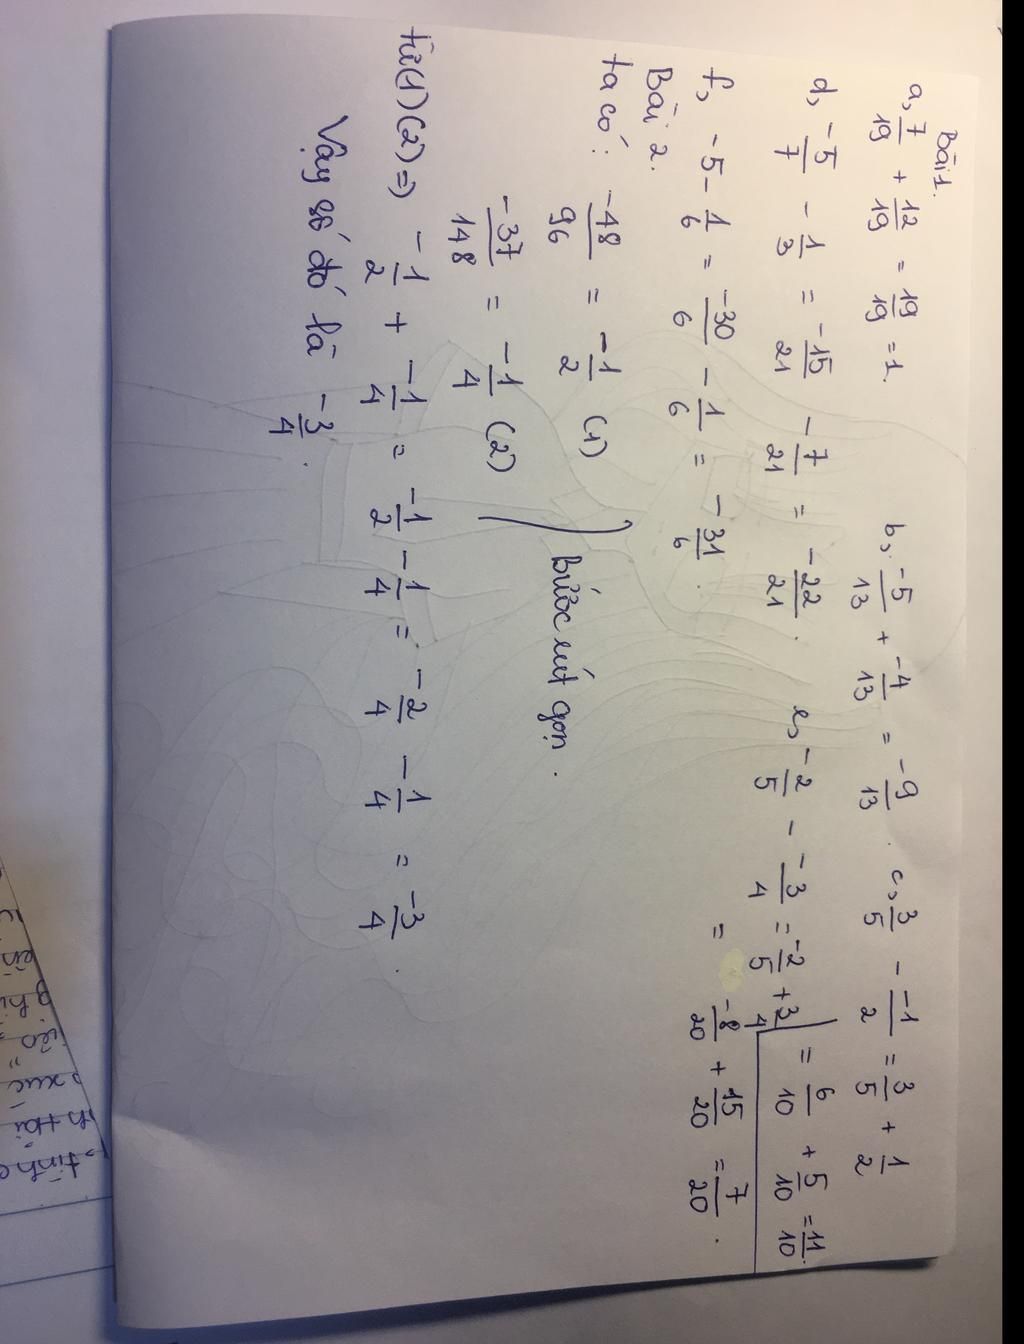 Bài 1.
a, 7/19 + 12/19 = 19/19 = 1. b, -5/13 + -4/13 = -9/13. c, 3/5 - -1/2 = 3/5 + 1/2
= 6/10 + 5/10 = 11/10.
d, -5/7 - 1/3 = -15/21 - 7/21 = -22/21. e, -2/5 - -3/4 = -2/5 + 3/4
= -8/20 + 15/20 = 7/20.
f, -5 - 1/6 = -30/6 - 1/6 = -31/6.
Bài 2.
ta có: -48/96 = -1/2 (1)
-37/148 = -1/4 (2)
bước rút gọn.
từ (1) (2) => -1/2 + -1/4 = -1/2 - 1/4 = -2/4 - 1/4 = -3/4.
Vậy số đó là -3/4.